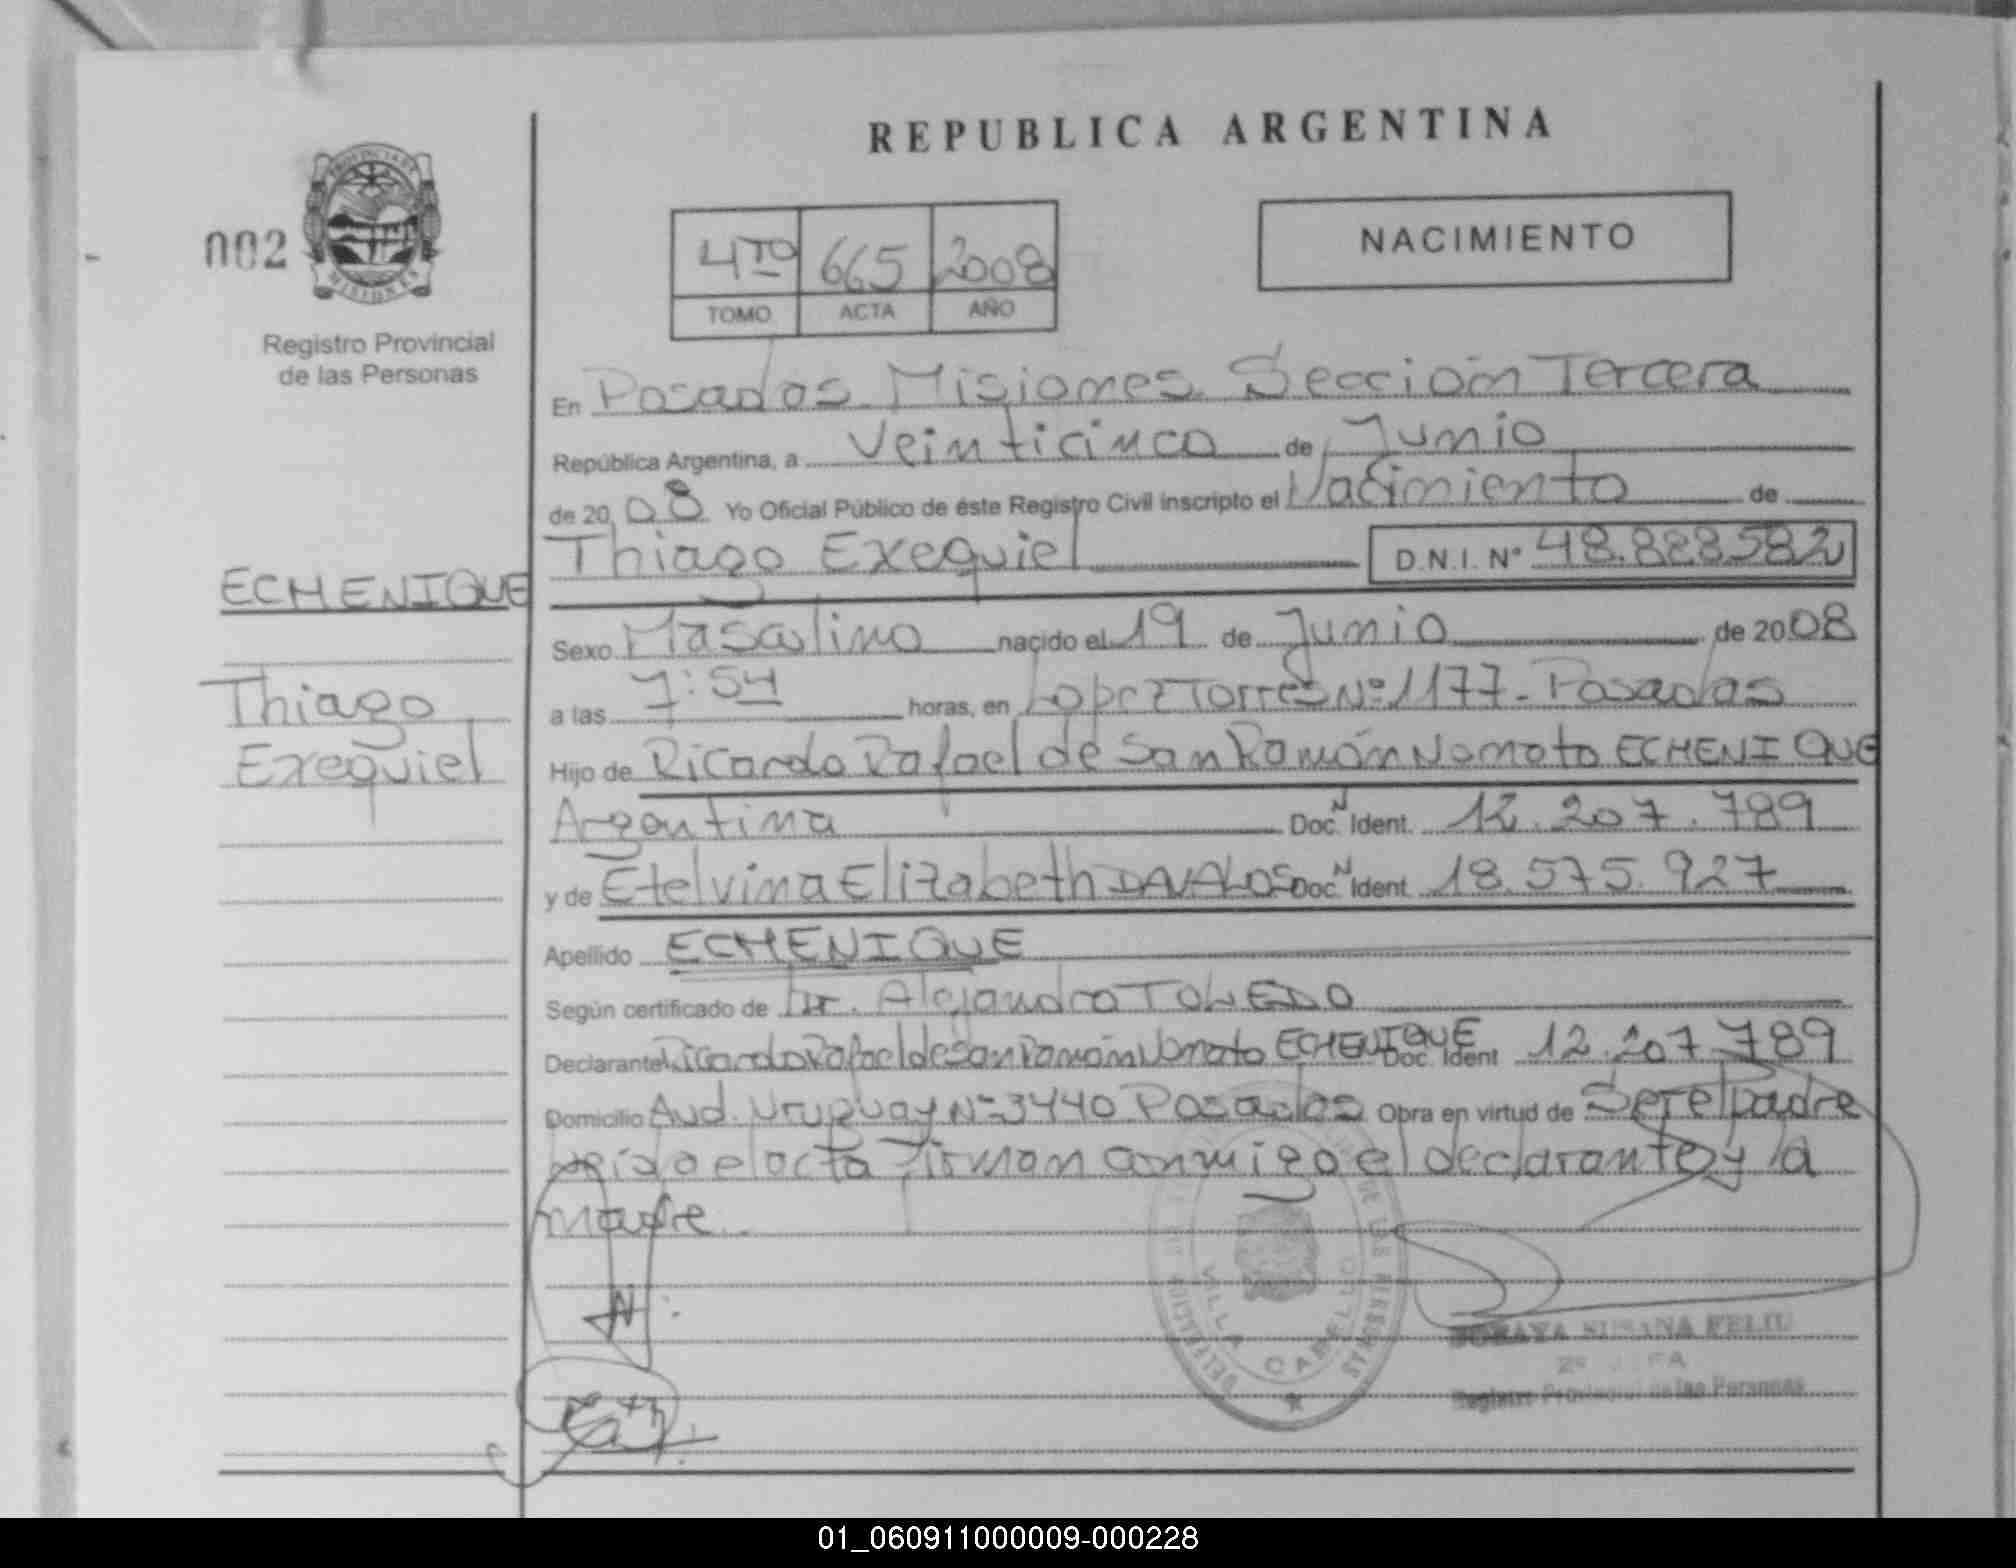 REPUBLICA ARGENTINA
PROVINCIA DE
MISIONES
002
Registro Provincial
de las Personas
4TO 665 2008
TOMO ACTA AÑO
NACIMIENTO
En Posadas Misiones Sección Tercera
República Argentina, a Veinticinco de Junio
de 2008 Yo Oficial Público de éste Registro Civil inscripto el Nacimiento de
Thiago Exequiel D.N.I. Nº 48.828.582
ECHENIQUE
Thiago
Exequiel
Sexo Masculino nacido el 19 de Junio de 2008
a las 7:54 horas, en Lopez Torres Nº 1177 - Posadas
Hijo de Ricardo Rafael de San Ramón Nonato ECHENIQUE
Argentina Doc. Ident. 12.207.789
y de Etelvina Elizabeth DAVALOS Doc. Ident. 18.575.927
Apellido ECHENIQUE
Según certificado de Dr. Alejandro TOLEDO
Declarante Ricardo Rafael de San Ramón Nonato ECHENIQUE Doc. Ident 12.207.789
Domicilio Avd. Uruguay Nº 3440 Posadas Obra en virtud de Ser el padre
leída el acta firman conmigo el declarante y la
madre.
DELEGACION
VILLA CABELLO
DE LAS PERSONAS
SORAYA SUSANA FELIU
2º JEFA
Registro Provincial de las Personas
01_060911000009-000228